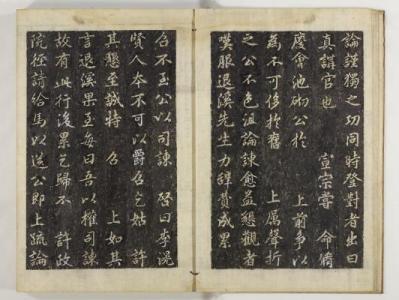 論謹獨之功同時登對者出曰
真講官也 宣宗嘗 命脩
慶會池砌公於 上前爭以
為不可侈於舊 上厲聲折
之公不色沮論諫愈益懇觀者
嘆服退溪先生力辭贊成累
召不至公以司諫 啓曰李滉
賢人本不可以爵召乞姑 許
其懇至誠特 召 上如其
言退溪果至每曰吾以權司諫
故有此行後累乞歸不 許政
院徑請給馬以送公即上疏論